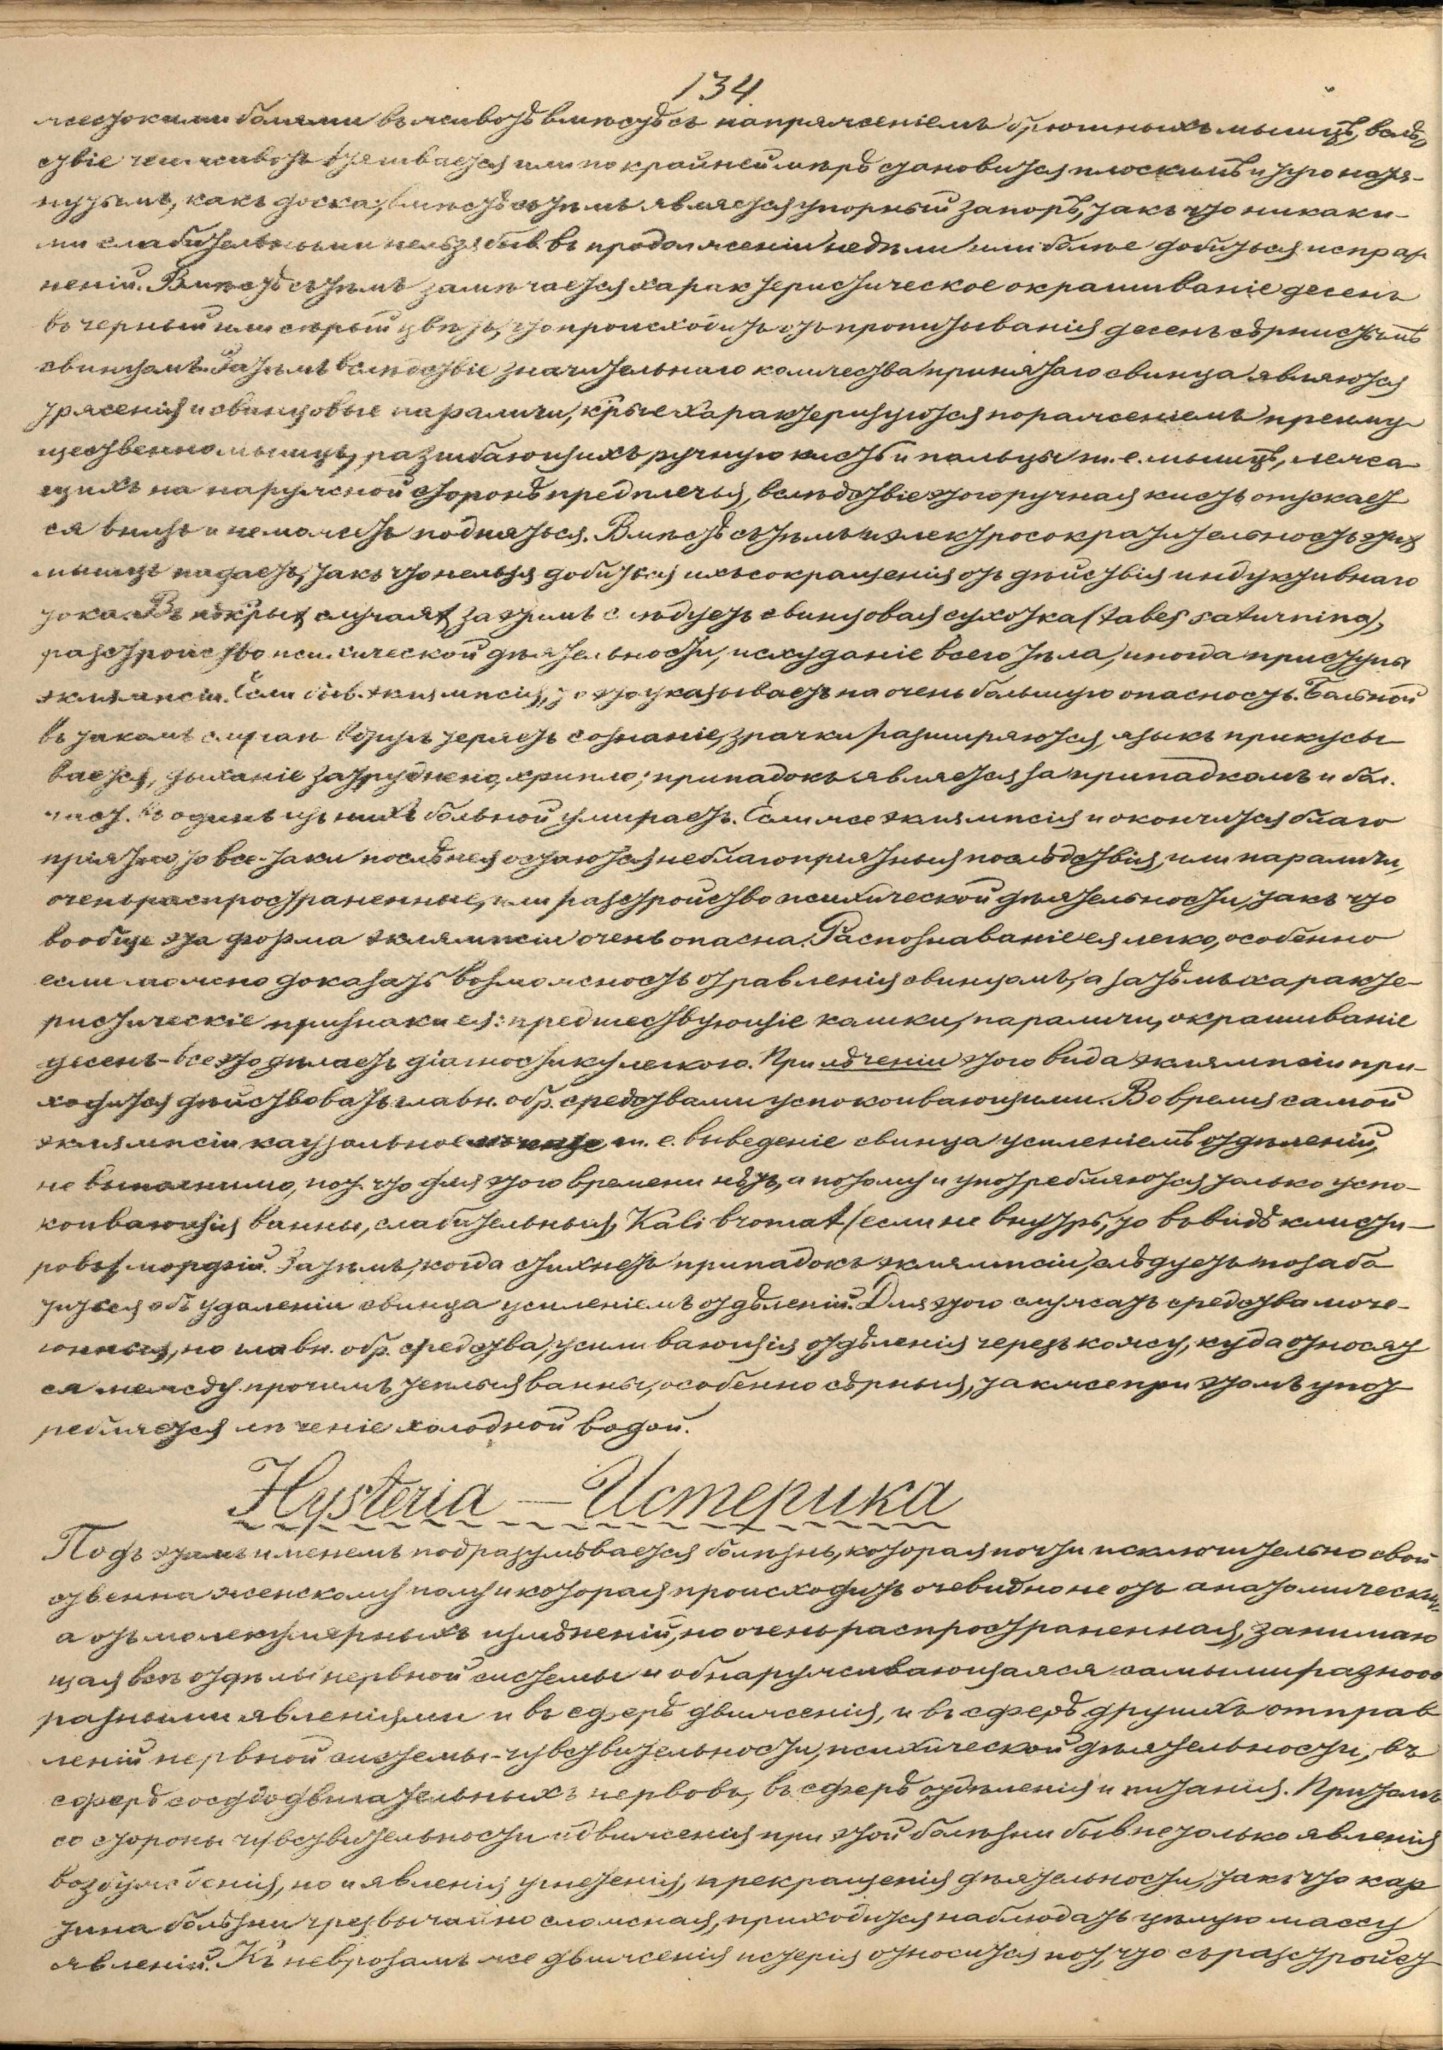 134.
жестокими болями въ животѣ вмѣстѣ съ напряженіемъ брюшныхъ мышцъ, вслѣд-
ствіе чего животъ втягивается или по крайней мѣрѣ становится плоскимъ и туго натя-
нутымъ, какъ доска, вмѣстѣ съ тѣмъ является упорный запоръ, такъ что никаки-
ми слабительными нельзя быв. въ продолженіи недѣли или болѣе добиться испраж
неній. Вмѣстѣ съ тѣмъ замѣчается характеристическое окрашиваніе десенъ
въ черный или сѣрый цвѣтъ, что происходитъ отъ пропитыванія десенъ сѣрнистымъ
свинцомъ. Затѣмъ вслѣдствіе значительнаго количества принятаго свинца являются
трясенія и свинцовые параличи, кᵗрые характеризуются пораженіемъ преиму
щественно мышцъ, разгибающихъ ручную кисть и пальцы т. е. мышцъ, лежа
щихъ на наружной сторонѣ предплечья, вслѣдствіе этого ручная кисть опускает
ся внизъ и не можетъ подняться. Вмѣстѣ съ тѣмъ и электросократительность этих
мышцъ падаетъ, такъ что нельзя добиться ихъ сокращенія отъ дѣйствія индуктивнаго
тока. Въ нѣкᵗрых случаях за этимъ слѣдуетъ свинцовая сухотка (tabes saturnina),
разстройство психической дѣятельности, исхуданіе всего тѣла, иногда приступы
эклямпсіи. Если быв. эклямпсія, то это указываетъ на очень большую опасность. Больной
въ такомъ случаѣ вдругъ теряетъ сознаніе, зрачки расширяются, языкъ прикусы
вается, дыханіе затруднено, хрипло; припадокъ является за припадкомъ и бол.
част. въ одинъ изъ нихъ больной умираетъ. Если же эклямпсія и окончится благо
пріятно, то все-таки послѣ нея остаются неблагопріятныя послѣдствія, или параличи,
очень распространенные, или разстройство психической дѣятельности, такъ что
вообще эта форма эклямпсіи очень опасна. Распознаваніе ея легко, особенно
если можно доказать возможность отравленія свинцомъ, а затѣмъ характе-
ристическіе признаки ея: предшествующіе колики, параличи, окрашиваніе
десенъ - все это дѣлаетъ діагностику легкою. При лѣченіи этого вида эклямпсіи при-
ходится дѣйствовать главн. обр. средствами успокоивающими. Во время самой
эклямпсіи каузальное лѣченіе т. е. выведеніе свинца усиленіемъ отдѣленій,
не выполнимо, пот. что для этого времени нѣтъ, а потому и употребляются только успо-
коивающія ванны, слабительныя, Kali bromat (если не внутрь, то въ видѣ клисти-
ровъ), морфій. Затѣмъ, когда стихнетъ припадокъ эклямпсіи, слѣдуетъ позабо
титься объ удаленіи свинца усиленіемъ отдѣленій. Для этого служатъ средства моче-
гонныя, но главн. обр. средства, усиливающія отдѣленія черезъ кожу, куда относят
ся между прочимъ теплыя ванны, особенно сѣрныя, также при этомъ упот
ребляется лѣченіе холодной водой.
Hysteria — Истерика
Подъ этимъ именемъ подразумѣвается болѣзнь, которая почти исключительно свой
ственна женскому полу и которая происходитъ очевидно не отъ анатомических,
а отъ молекулярныхъ измѣненій, но очень распространенная, занимаю
щая всѣ отдѣлы нервной системы и обнаруживающаяся самыми разнооб
разными явленіями и въ сферѣ движенія, и въ сферѣ другихъ отправ
леній нервной системы - чувствительности, психической дѣятельности, въ
сферѣ сосудодвигательныхъ нервовъ, въ сферѣ отдѣленія и питанія. Притомъ
со стороны чувствительности и движенія при этой болѣзни быв. не только явленія
возбужденія, но и явленія угнетенія, прекращенія дѣятельности, такъ что кар
тина болѣзни чрезвычайно сложная, приходится наблюдать цѣлую массу
явленій. Къ неврозамъ же движенія истерія относится пот. что съ разстройст